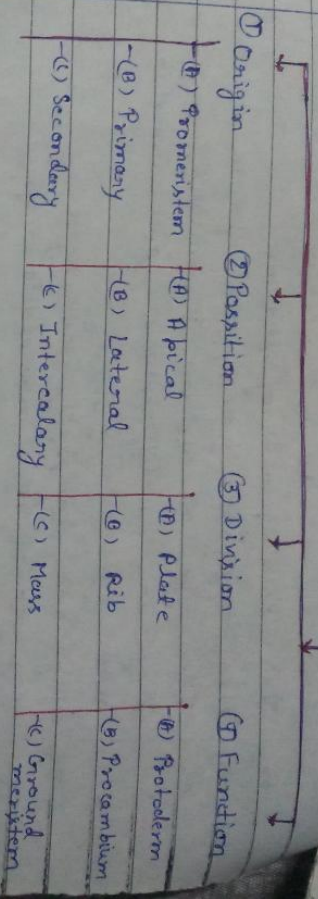 ① Origin
(A) Promeristem
(B) Primary
(C) Secondary
② Position
(A) Apical
(B) Lateral
(C) Intercalary
③ Division
(A) Plate
(B) Rib
(C) Mass
④ Function
(A) Protoderm
(B) Procambium
(C) Ground
meristem